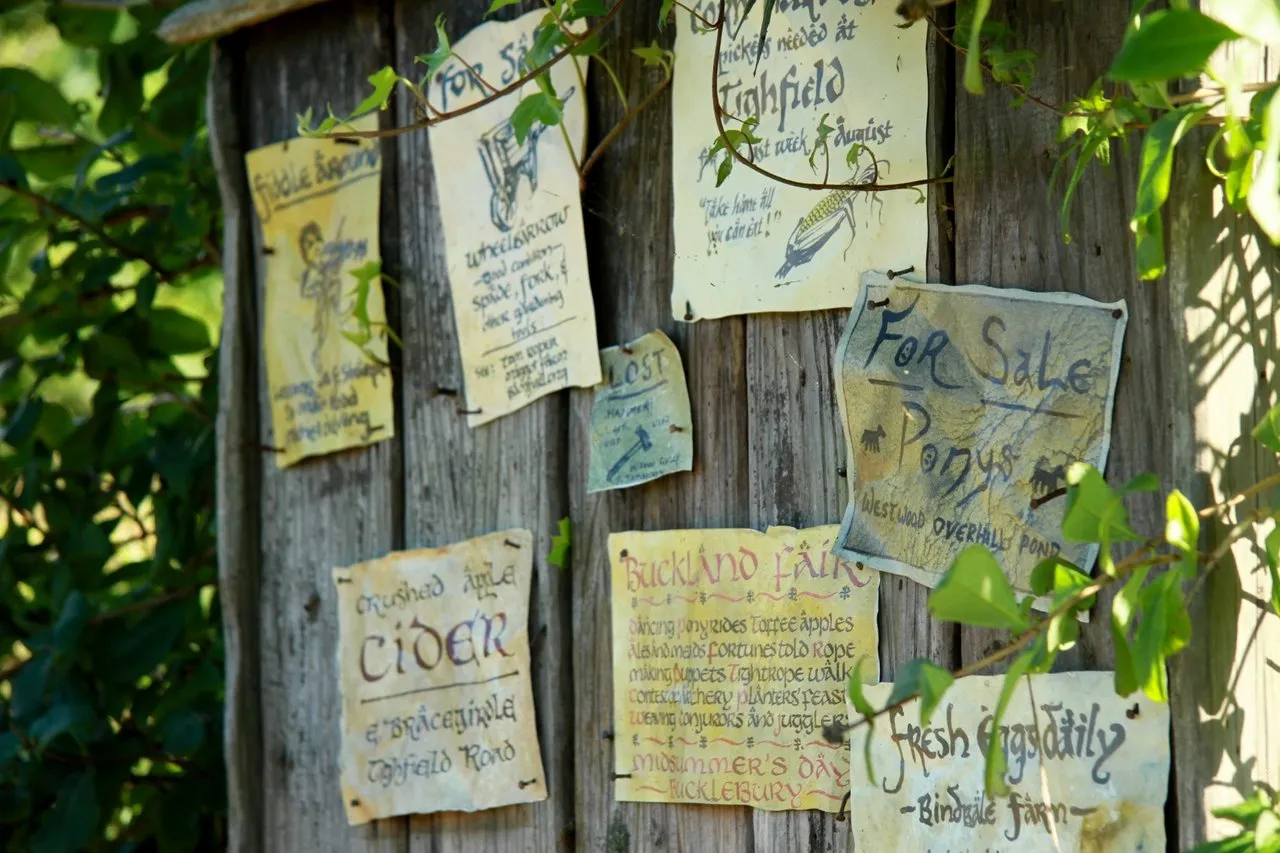 fiddle around
FOR SA
WHEELBARROW
good condition
spade, fork, &
other gardening
tools
pickers needed at
Tighfield
st week August
"Take home all
you can eat!"
LOST
HAMMER
FOR SALE
PONYS
WESTWOOD OVERHILL POND
crushed apple
CIDER
E. BRACEGIRDLE
Tighfield Road
BUCKLAND FAIR
dancing ponyrides Toffee apples
ales and meads Fortunes told Rope
making Puppets Tightrope walk
contest archery planters' feast
weaving conjurors and jugglers
MIDSUMMER'S DAY
BUCKLEBURY
fresh Eggs daily
-Bindbale farm-